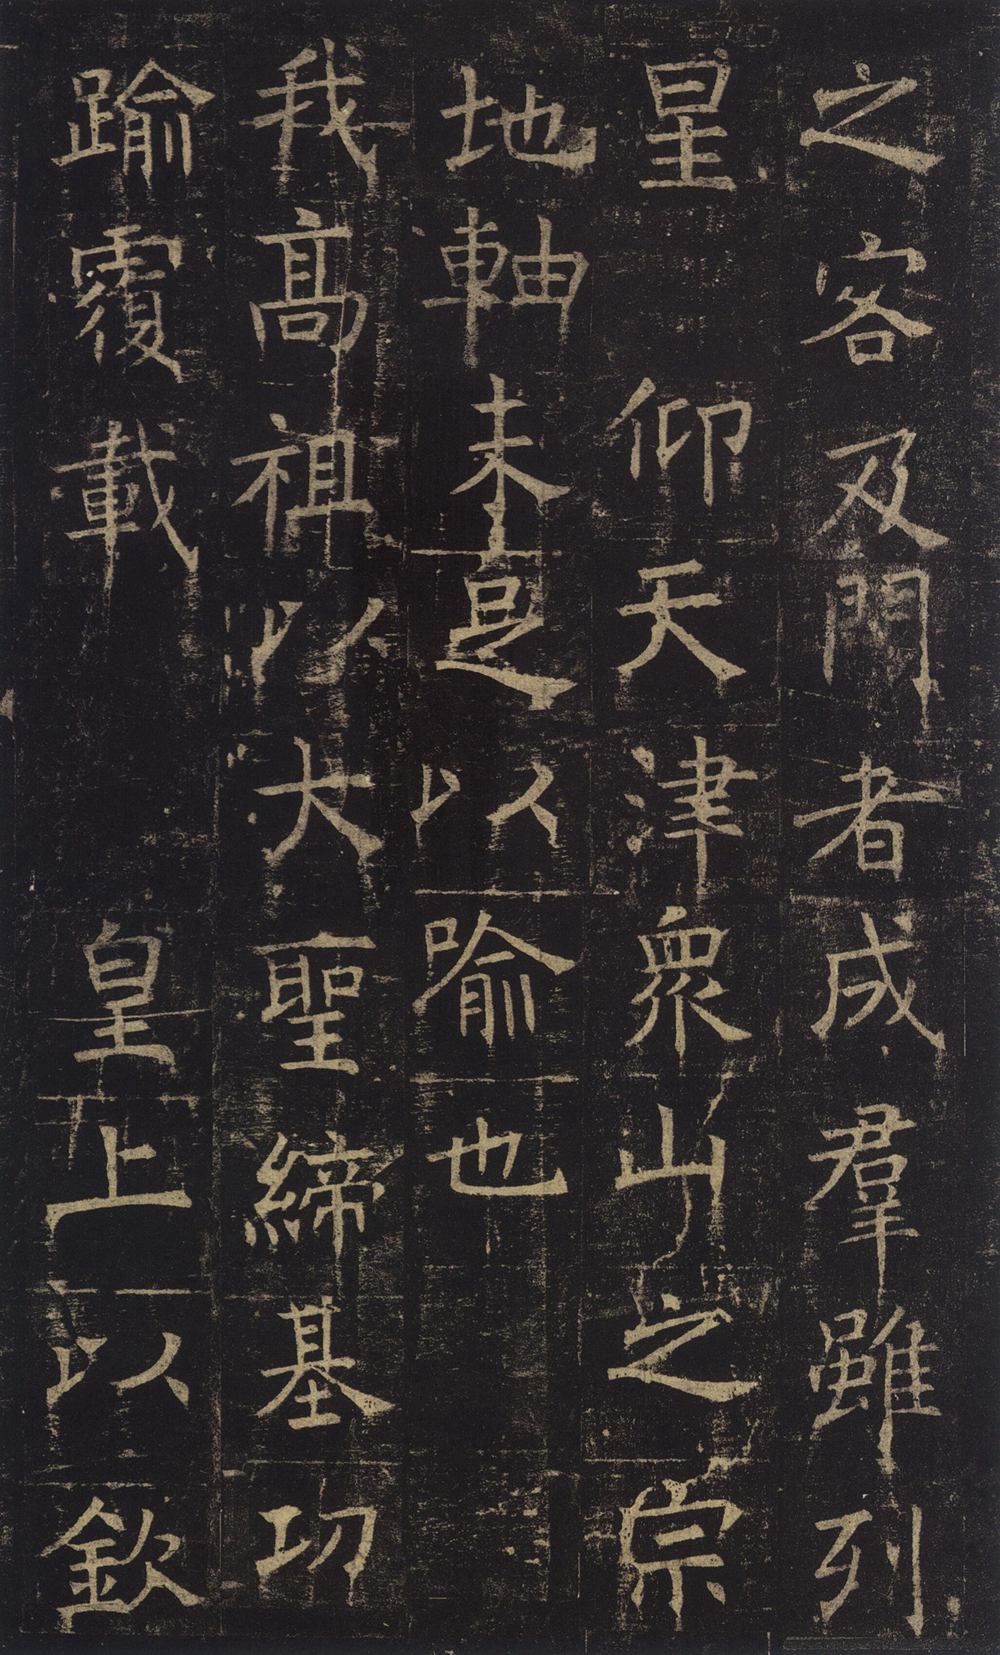 之客及門者成羣雖列
星仰天津衆山之宗
地軸未足以喻也
我高祖以大聖締基功
踰覆載皇上以欽